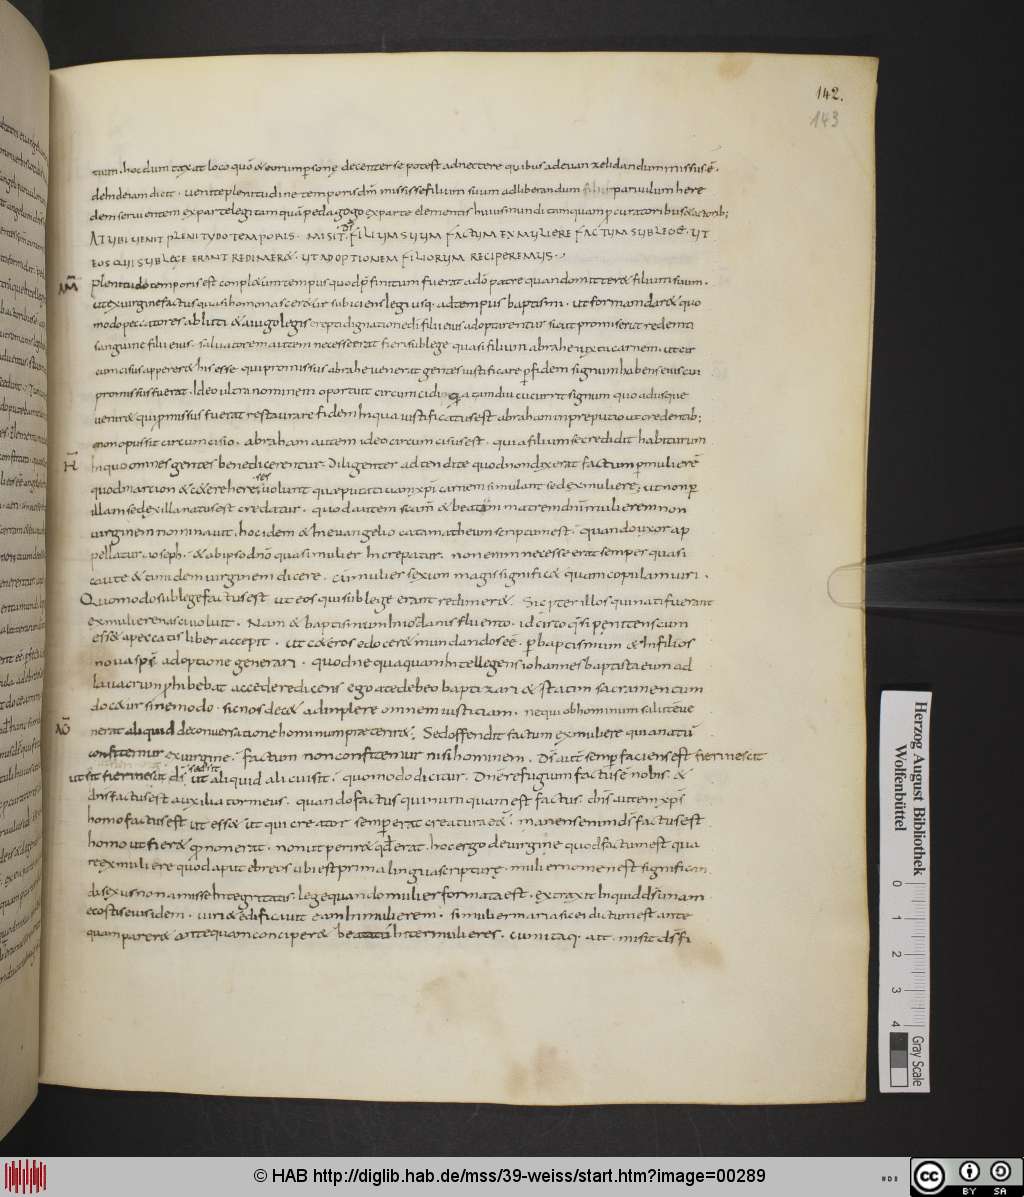 142.
143
tum. hoc dum taxat loco quō & eorum psonę decenter se potest adnectere quibus ad euangelizandum missus ē.
dehinc iam dicit. uenit & plenitudine temporis dm̄ misisse filium suum ad liberandum paruulum here
dem seruientem ex parte legi tamquā pedagogo ex parte elementis huius mundi tamquam pcuratorib; & actorib;
AT UBI UENIT PLENITUDO TEMPORIS. MISIT DS FILIUM SUUM FACTUM EX MULIERE FACTUM SUB LEGE. UT
EOS QUI SUB LEGE ERANT REDIMER&. UT ADOPTIONEM FILIORUM RECIPEREMUS.
AM
plenitudo temporis est conpl&um tempus quod p̄finitum fuerat a dō patre quando mitter& filium suum.
ut ex uirgine factus quasi homo nascer&ur subiciens legi usq. ad tempus baptismi. ut formam dar& quo
modo peccatores abluti & a iugo legis erepti dignatione di filii eius adoptarentur sicut promiserat redemti
sanguine filii eius. saluatorem autem necesse erat fieri sub lege quasi filium abrahe iuxta carnem. ut cir
cumcisus apperer& his esse. qui promissus abrahe uenerat gentes iustificare p fidem signum habens eius cui
promissus fuerat. Ideo ultra nominem oportuit circumcidi. quia tamdiu cucurrit signum quo adusque
uenir& qui pmissus fuerat restaurare fidem in qua iustificatus est abraham in preputio ut credentib;
non opus sit circumcisio. abraham autem ideo circumcisus est. quia filium se credidit habiturum
H
In quo omnes gentes benedicerentur. Diligenter adtendite quod non dixerat factum p mulierē
quod marcion & c&ere hereses uolunt quae putatiuam xpi carnem simulant sed ex muliere; ut non p
illam sed ex illa natus est credatur. quod autem scam & beatam matrem dni mulierem non
uirginem nominauit. hoc idem & in euangelio cata matheum scriptum est. quando uxor ap
pellatur ioseph. & ab ipso dno quasi mulier increpatur. non enim necesse erat semper quasi
caute & timidem uirginem dicere. cum mulier sexum magis signific& quam copulam uiri.
Quomodo sub lege factus est ut eos qui sub lege erant redimer&. Sic pter illos qui nati fuerant
ex muliere nasci uoluit. Nam & baptismum in iordanis fluento. id circo quasi penitens cum
ess& a peccatis liber accepit. ut c&eros edocer& mundandos eē. p baptismum & in filios
noua sps adoptione generari. quod nequaquam intellegens iohannes baptista eum ad
lauacrum phibebat accedere dicens ego a te debeo baptizari & statim sacramentum
doc&ur sine modo. sic nos dec& adinplere omnem iustitiam. ne qui ob hominum salutē ue
nerat aliquid de conuersatione hominum praeterir&. Sed offendit factum ex muliere qui natū
confitemur ex uirgine. factum non confitemur nisi hominem. Ds aut semp faciens est
ut sit aliquid alicui sit. quomodo dicitur. Dne refugium factus e nobis. &
dns factus est auxiliator meus. quando factus qui numquam est factus. dns autem xps
homo factus est ut ess& ut qui creator semper erat creatura eēt. manens enim ds factus est
homo ut fier& quod non erat. non ut perir& quod erat. hoc ergo de uirgine quod factum est qua
re ex muliere quod aput ebreos ubi est prima lingua scripturę. mulier nomen est significan
di sexus non amisse integritatis. lege quando mulier formata est. extraxit inquid ds unam
e costis eiusdem. uiri & edificauit eam in mulierem. si mulier maria sicei dictum est ante
quam parer& antequam conciper& beata tu inter mulieres. cum itaq. ait. misit ds fi
Herzog August Bibliothek
Wolfenbüttel
0 1 2 3 4
Gray Scale
© HAB http://diglib.hab.de/mss/39-weiss/start.htm?image=00289
CC BY SA